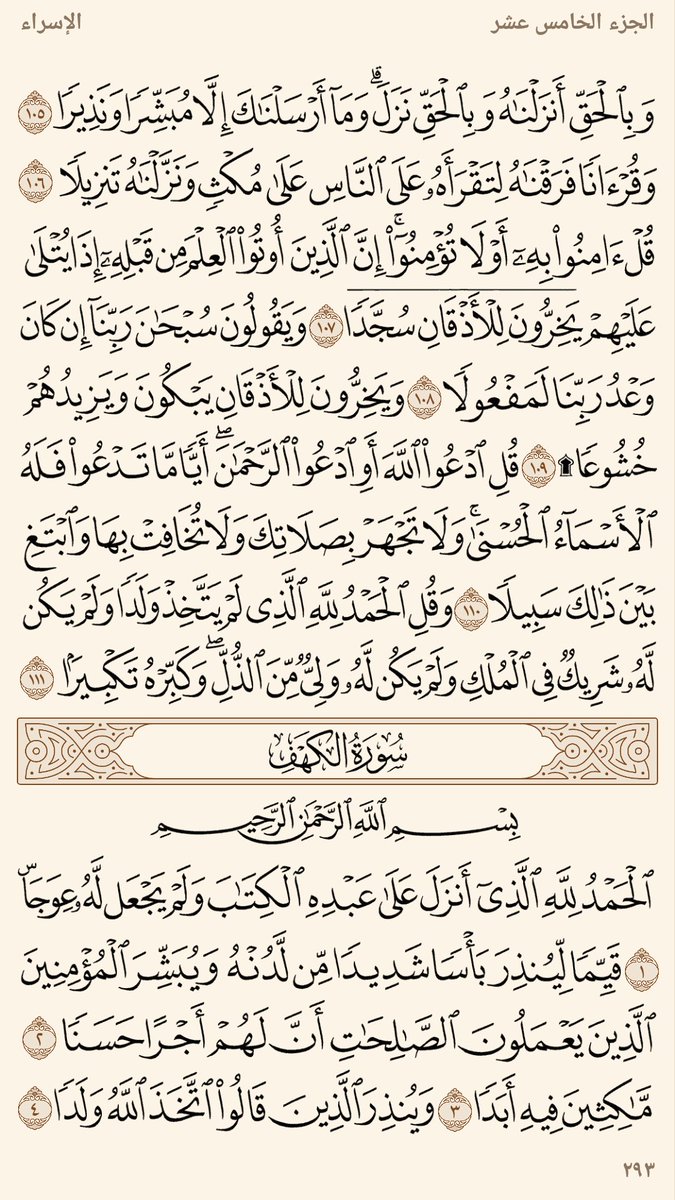 الجزء الخامس عشر
الإسراء
وَبِٱلۡحَقِّ أَنزَلۡنَٰهُ وَبِٱلۡحَقِّ نَزَلَۗ وَمَآ أَرۡسَلۡنَٰكَ إِلَّا مُبَشِّرٗا وَنَذِيرٗا ١٠٥
وَقُرۡءَانٗا فَرَقۡنَٰهُ لِتَقۡرَأَهُۥ عَلَى ٱلنَّاسِ عَلَىٰ مُكۡثٖ وَنَزَّلۡنَٰهُ تَنزِيلٗا ١٠٦
قُلۡ ءَامِنُواْ بِهِۦٓ أَوۡ لَا تُؤۡمِنُوٓاْۚ إِنَّ ٱلَّذِينَ أُوتُواْ ٱلۡعِلۡمَ مِن قَبۡلِهِۦٓ إِذَا يُتۡلَىٰ
عَلَيۡهِمۡ يَخِرُّونَۤ لِلۡأَذۡقَانِ سُجَّدٗا ١٠٧ وَيَقُولُونَ سُبۡحَٰنَ رَبِّنَآ إِن كَانَ
وَعۡدُ رَبِّنَا لَمَفۡعُولٗا ١٠٨ وَيَخِرُّونَ لِلۡأَذۡقَانِ يَبۡكُونَ وَيَزِيدُهُمۡ
خُشُوعٗا۩ ١٠٩ قُلِ ٱدۡعُواْ ٱللَّهَ أَوِ ٱدۡعُواْ ٱلرَّحۡمَٰنَۖ أَيّٗا مَّا تَدۡعُواْ فَلَهُ
ٱلۡأَسۡمَآءُ ٱلۡحُسۡنَىٰۚ وَلَا تَجۡهَرۡ بِصَلَاتِكَ وَلَا تُخَافِتۡ بِهَا وَٱبۡتَغِ
بَيۡنَ ذَٰلِكَ سَبِيلٗا ١١٠ وَقُلِ ٱلۡحَمۡدُ لِلَّهِ ٱلَّذِي لَمۡ يَتَّخِذۡ وَلَدٗا وَلَمۡ يَكُن
لَّهُۥ شَرِيكٞ فِي ٱلۡمُلۡكِ وَلَمۡ يَكُن لَّهُۥ وَلِيّٞ مِّنَ ٱلذُّلِّۖ وَكَبِّرۡهُ تَكۡبِيرَۢا ١١١
سُورَةُ الكَهۡفِ
بِسۡمِ ٱللَّهِ ٱلرَّحۡمَٰنِ ٱلرَّحِيمِ
ٱلۡحَمۡدُ لِلَّهِ ٱلَّذِيٓ أَنزَلَ عَلَىٰ عَبۡدِهِ ٱلۡكِتَٰبَ وَلَمۡ يَجۡعَل لَّهُۥ عِوَجَاۜ
١ قَيِّمٗا لِّيُنذِرَ بَأۡسٗا شَدِيدٗا مِّن لَّدُنۡهُ وَيُبَشِّرَ ٱلۡمُؤۡمِنِينَ
ٱلَّذِينَ يَعۡمَلُونَ ٱلصَّٰلِحَٰتِ أَنَّ لَهُمۡ أَجۡرًا حَسَنٗا ٢
مَّٰكِثِينَ فِيهِ أَبَدٗا ٣ وَيُنذِرَ ٱلَّذِينَ قَالُواْ ٱتَّخَذَ ٱللَّهُ وَلَدٗا ٤
٢٩٣